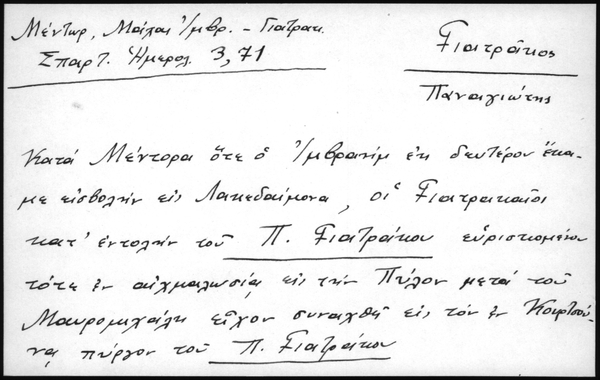 Μέντωρ, Μάχαι Ἰμβρ. - Γιατρακ.
Σπαρτ. Ἡμερολ. 3, 71
Γιατράκος
Παναγιώτης
Κατά Μέντορα ὅτε ὁ Ἰμβραήμ ἐκ δευτέρου ἔκα-
με εἰσβολήν εἰς Λακεδαίμονα, οἱ Γιατρακαῖοι
κατ' ἐντολήν τοῦ Π. Γιατράκου εὑρισκομένου
τότε ἐν αἰχμαλωσίᾳ εἰς τήν Πύλον μετά τοῦ
Μαυρομιχάλη εἶχον συναχθῆ εἰς τόν ἐν Κουρτσού-
νᾳ πύργον τοῦ Π. Γιατράκου